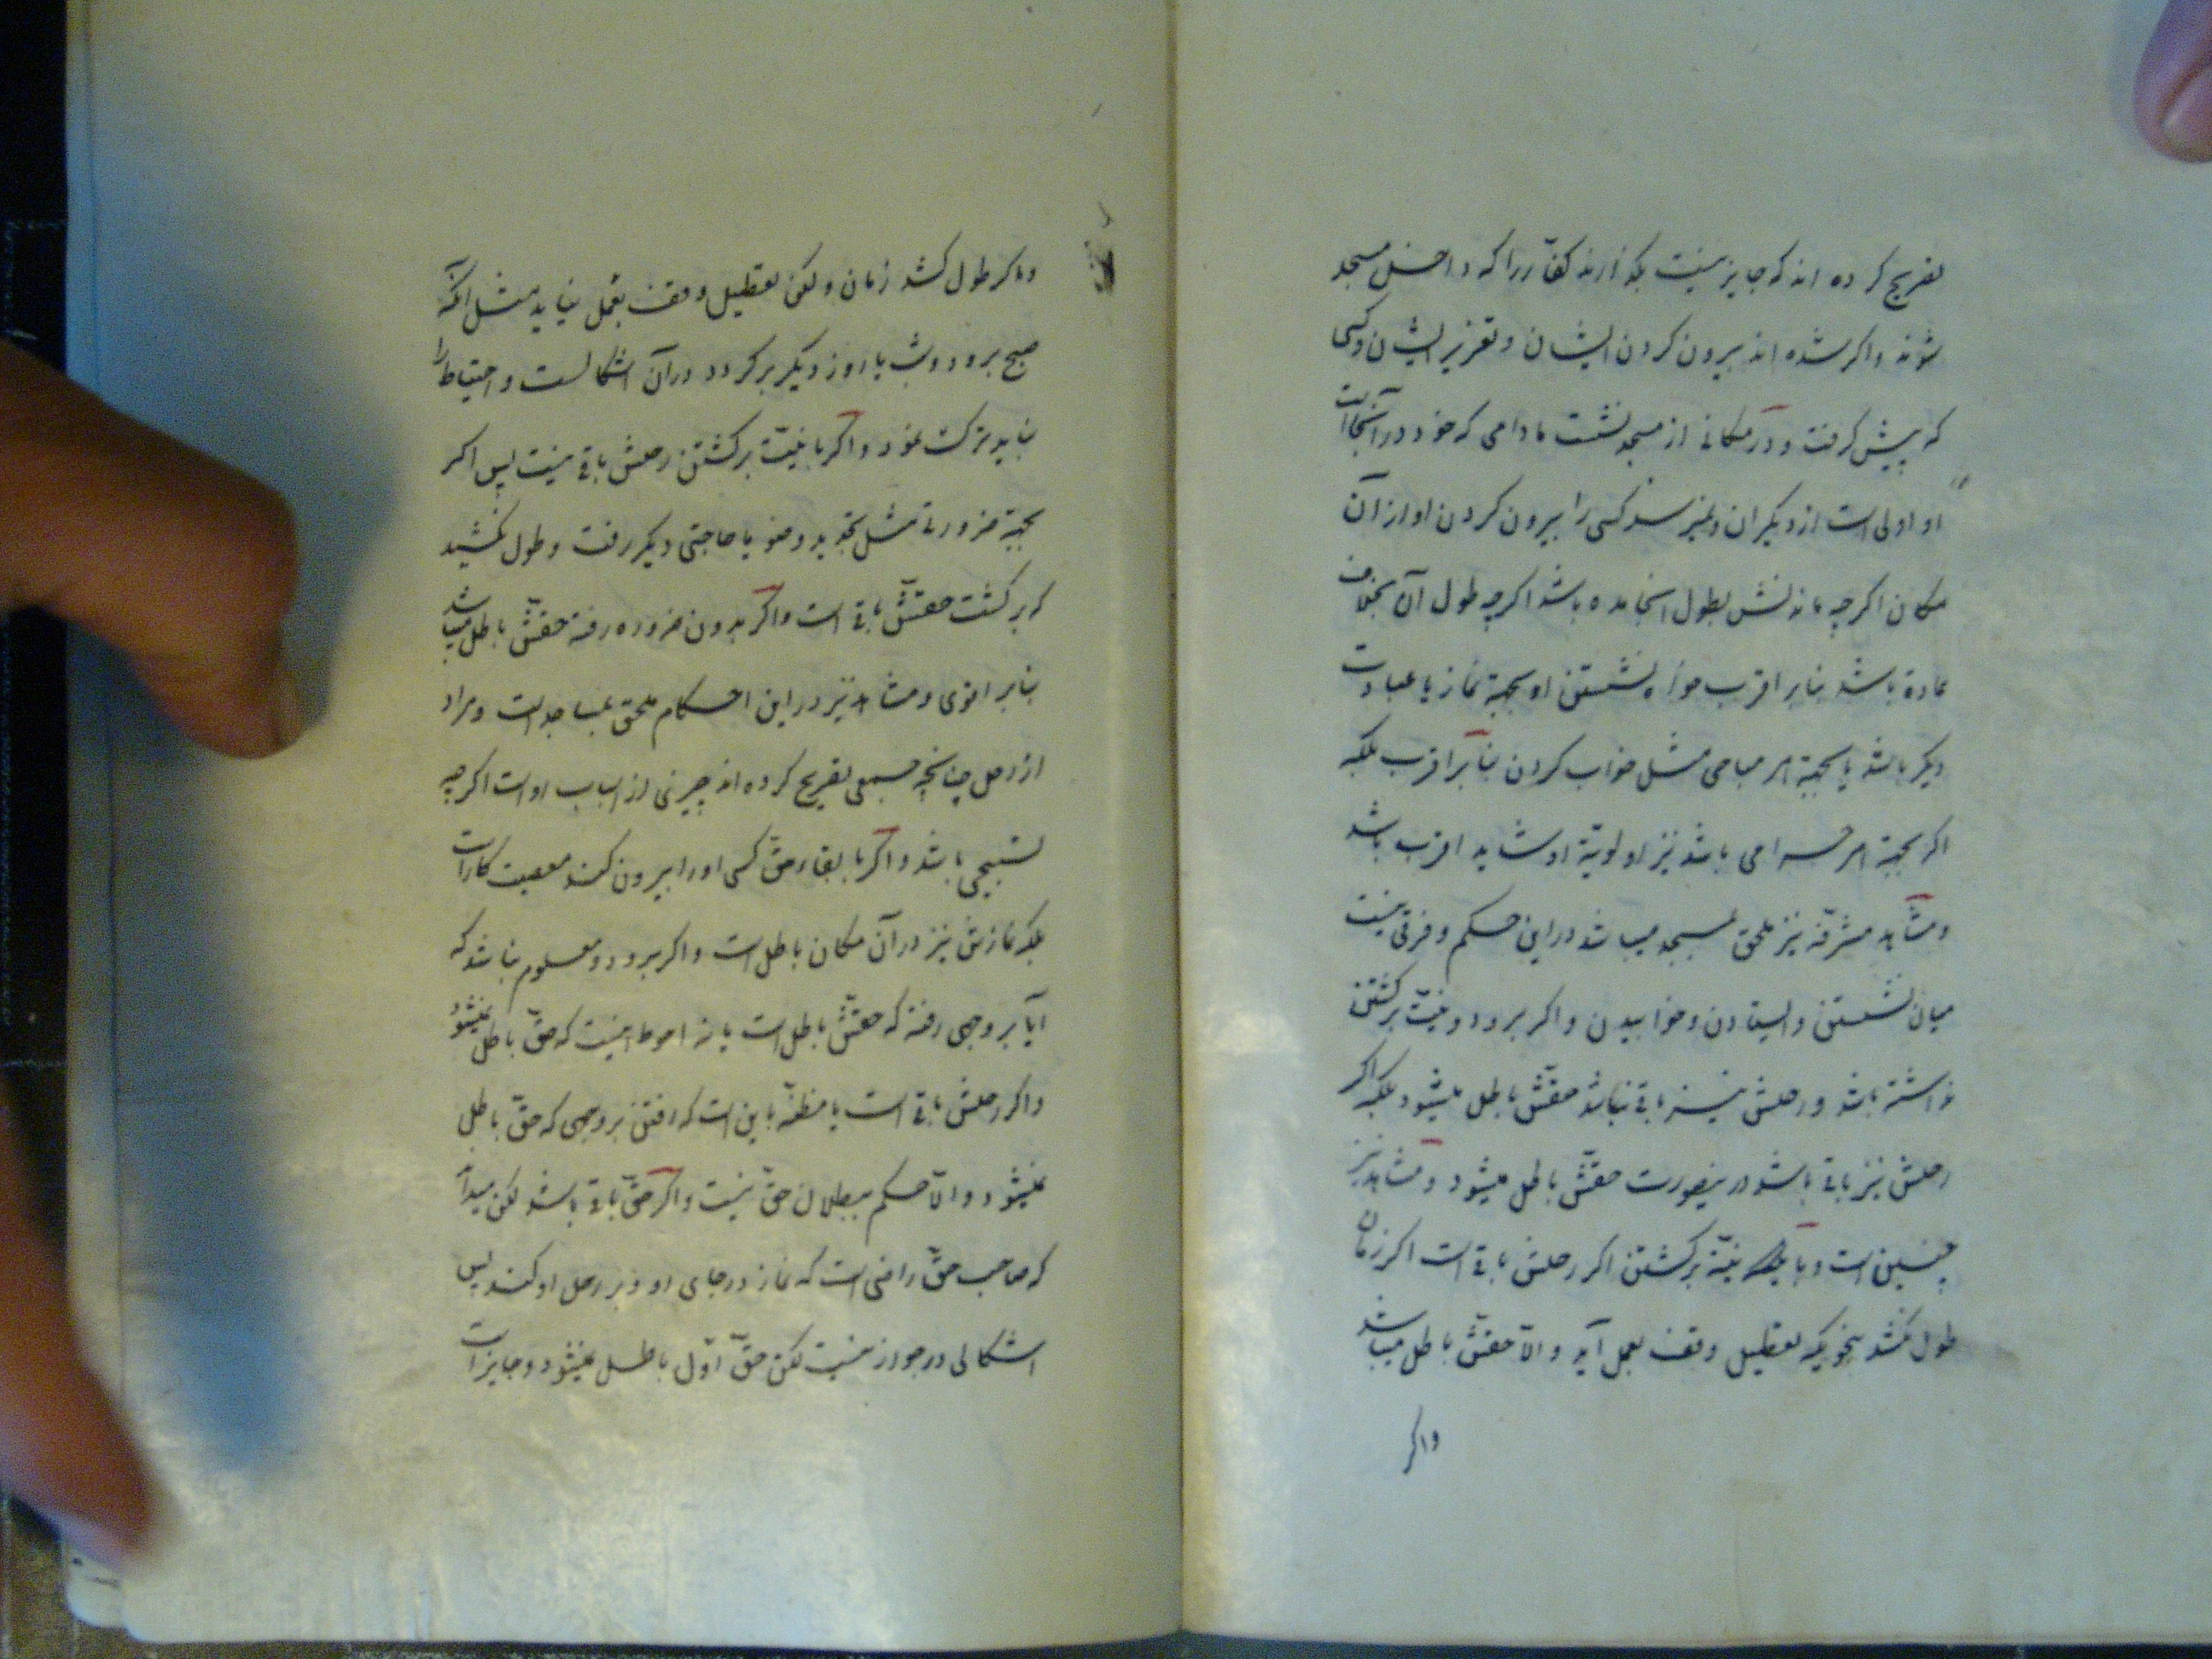 تصریح کرده اند که جایز نیست بگذارند کفّار را که داخل مسجد
شوند و اگر شده اند بیرون کردن ایشان و تعزیر ایشان و کسی
که پیش گرفت و در مکانی از مسجد نشست مادامی که خود در آنجا است
او اولی است از دیگران و نمیرسد کسی را بیرون کردن او از آن
مکان اگرچه ماندنش بطول انجامیده باشد اگرچه طول آن بخلاف
عادة باشد بنابر اقرب خواه نشستن او بجهة نماز یا عبادت
دیگر باشد یا بجهة امر مباحی مثل خواب کردن بنابر اقرب بلکه
اگر بجهة امر حرامی باشد نیز اولویّة او شاید اقرب باشد
و مشاهد مشرّفه نیز ملحق بمسجد میباشد در این حکم و فرقی نیست
میان نشستن و ایستادن و خوابیدن و اگر برود و نیّت برگشتن
نداشته باشد و رحلش نیز باقی نباشد حقّش باطل میشود بلکه اگر
رحلش نیز باقی باشد در اینصورت حقّش باطل میشود و مشاهد نیز
چنین است و با نیّة برگشتن اگر رحلش باقی است اگر زمان
طول نکشد بنحویکه تعطیل وقف بعمل آید و الّا حقّش باطل میباشد
واگر
و اگر طول کشد زمان و لکن تعطیل وقف بعمل نیاید مثل آنکه
صبح برود و شب یا روز دیگر برگردد در آن اشکالست و احتیاط را
نباید ترک نمود و اگر با نیّت برگشتن رحلش باقی نیست پس اگر
بجهة ضرورتی مثل تجدید وضو یا حاجتی دیگر رفت و طول نکشید
که برگشت حقّش باقی است و اگر بدون ضروره رفته حقّش باطل میباشد
بنابر اقوی و مشاهد نیز در این احکام ملحق بمساجد است و مراد
از رحل چنانچه جمعی تصریح کرده اند چیزی از اسباب او است اگرچه
تسبیحی باشد و اگر با بقاء حقّ کسی او را بیرون کند معصیت کار است
بلکه نمازش نیز در آن مکان باطل است و اگر برود و معلوم نباشد که
آیا بر وجهی رفته که حقّش باطل است یا نه احوط اینست که حقّ باطل نمیشود
و اگر رحلش باقی است یا مظنّه باین است که رفتن بر وجهی که حقّ باطل
نمیشود و الّا حکم ببطلان حقّ نیست و اگر حقّ باقی باشد لکن میداند
که صاحب حقّ راضی است که نماز در جای او و بر رحل او کند پس
اشکالی در جواز نیست لکن حقّ اوّل باطل نمیشود و جایز است